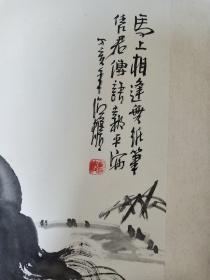 馬上相逢無紙筆
信君傳語報平安
丁亥年